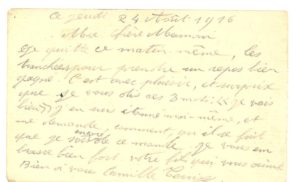 ce jeudi 24 Août 1916
Ma chère Maman
je quitte ce matin même, les
tranchées pour prendre un repos bien
gagné. C'est avec plaisir, et surprise
que je vous dis ces 3 mots: je vais
bien, j'en suis étonné moi-même, et
me demande comment, qu'il se fait
que je sois encore de ce monde. Je vous em
brasse bien fort votre fils qui vous aime
Bien à vous Camille